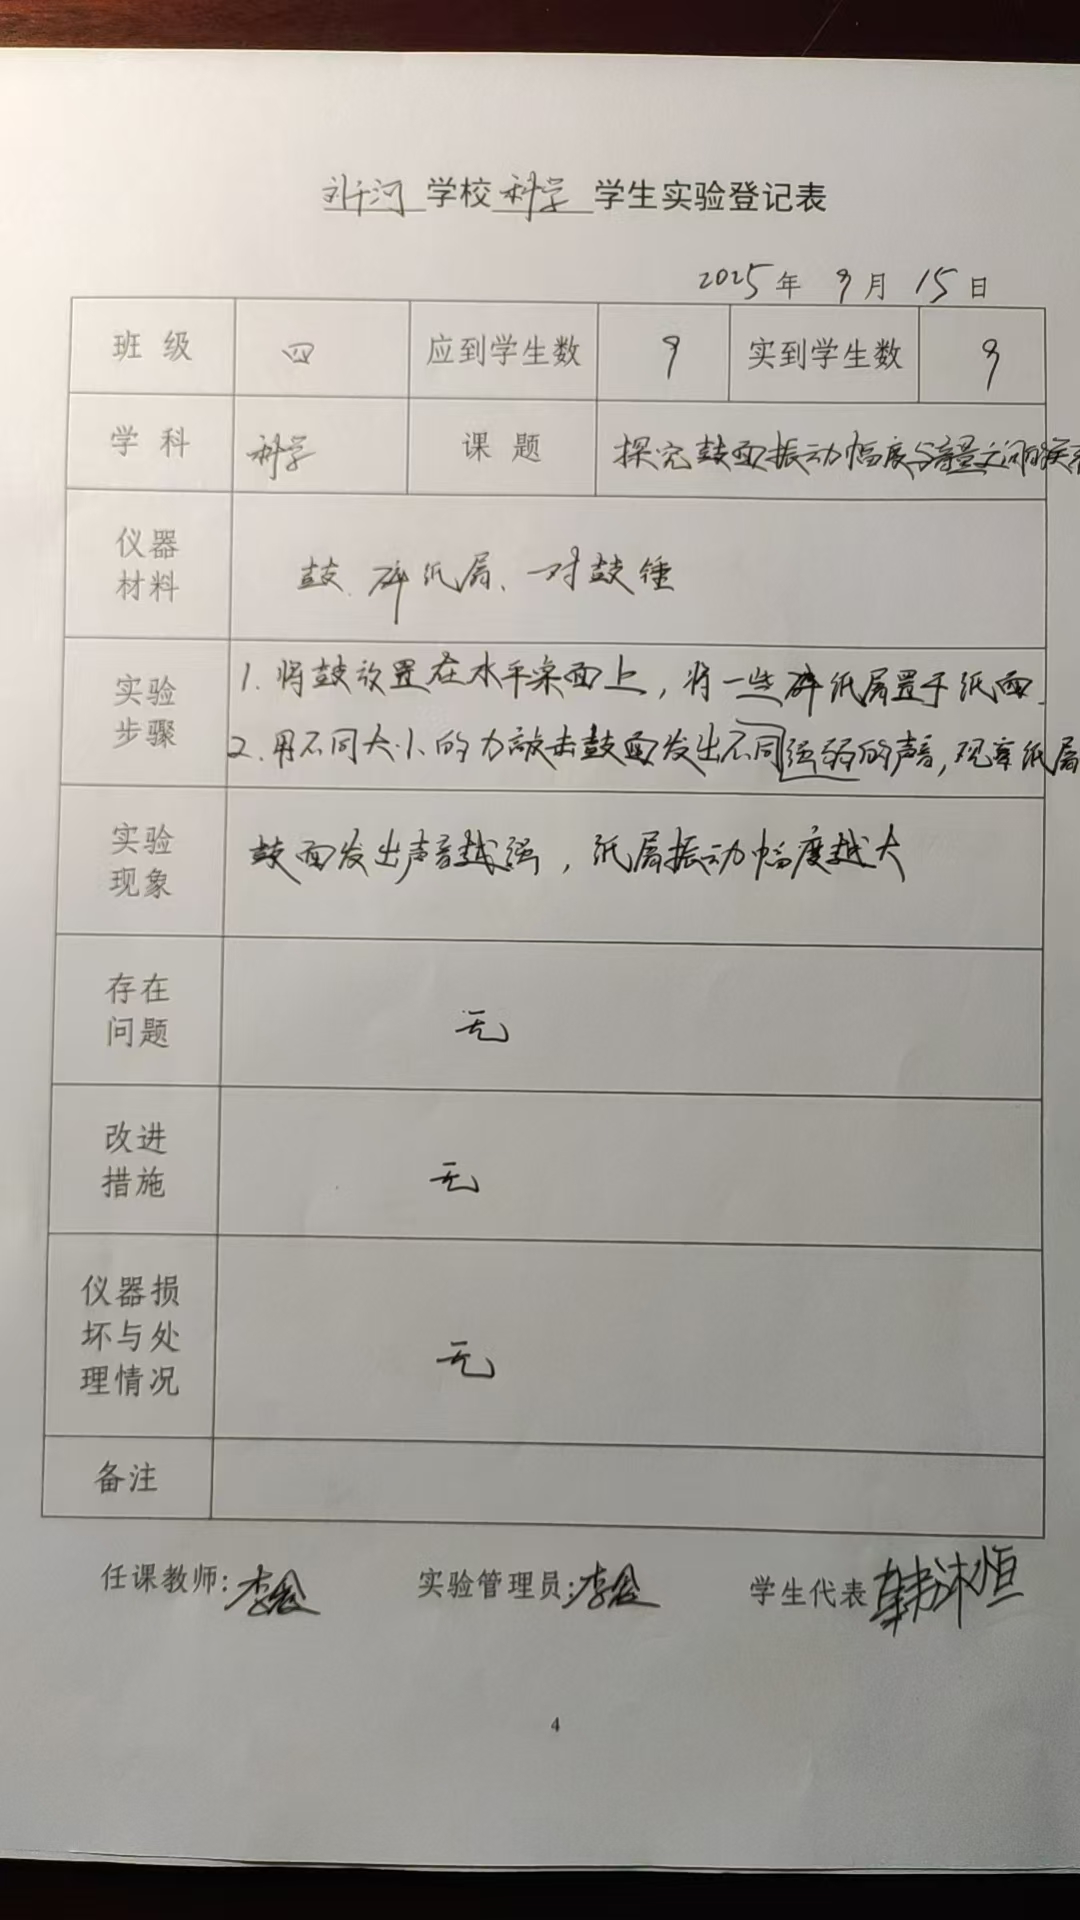 学校 科学 学生实验登记表
2025年 9月 15日
班 级 四 应到学生数 9 实到学生数 9
学 科 科学 课 题 探究鼓面振动幅度与音量之间的关系
仪器 材料 鼓、碎纸屑、一对鼓锤
实验 步骤 1. 将鼓放置在水平桌面上，将一些碎纸屑置于纸面.
2. 用不同大小的力敲击鼓面发出不同强弱的声音, 观察纸屑
实验 现象 鼓面发出声音越强，纸屑振动幅度越大
存在 问题 无
改进 措施 无
仪器损 坏与处 理情况 无
备注
任课教师: 李 实验管理员: 李 学生代表 韩沐恒
4